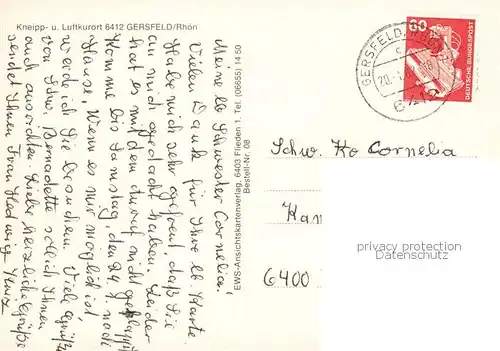 Kneipp- u. Luftkurort 6412 GERSFELD/Rhön
Meine lb Schwester Cornelia!
Vielen Dank für Ihre lb. Karte.
Habe mich sehr gefreut, daß Sie
an mich gedacht haben. Leider
hat es mit dem Anruf nicht geklappt
Komme bis Samstag, den 24.1. nach
Hause, Wenn es mir möglich ist,
werde ich Sie besuchen. Viele Grüße
von Schw. Bernadette soll ich Ihnen
auch ausrichten. Liebe herzliche Grüße
sendet Ihnen Frau Hedwig
EWS-Ansichtskartenverlag, 6403 Flieden 1, Tel. (06655) 14 50
Bestell-Nr. 08
GERSFELD, RHÖN
20.-1.
6412
60
DEUTSCHE BUNDESPOST
Schw. Ko Cornelia
6400
privacy protection
Datenschutz